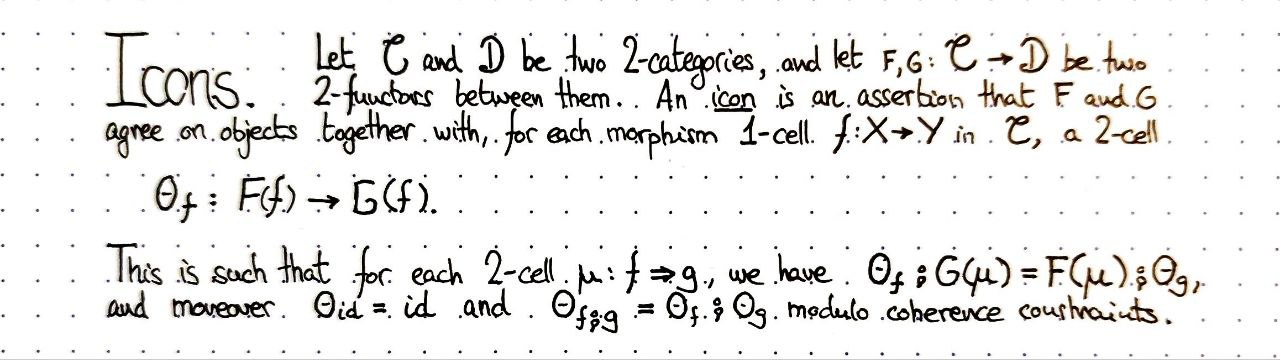 Icons. Let C and D be two 2-categories, and let F,G: C → D be two
2-functors between them. An icon is an assertion that F and G
agree on objects together with, for each morphism 1-cell f: X → Y in C, a 2-cell
Θ_f : F(f) → G(f).
This is such that for each 2-cell μ: f ⇒ g, we have Θ_f ⨟ G(μ) = F(μ) ⨟ Θ_g,
and moreover Θ_id = id and Θ_f⨟g = Θ_f ⨟ Θ_g modulo coherence constraints.